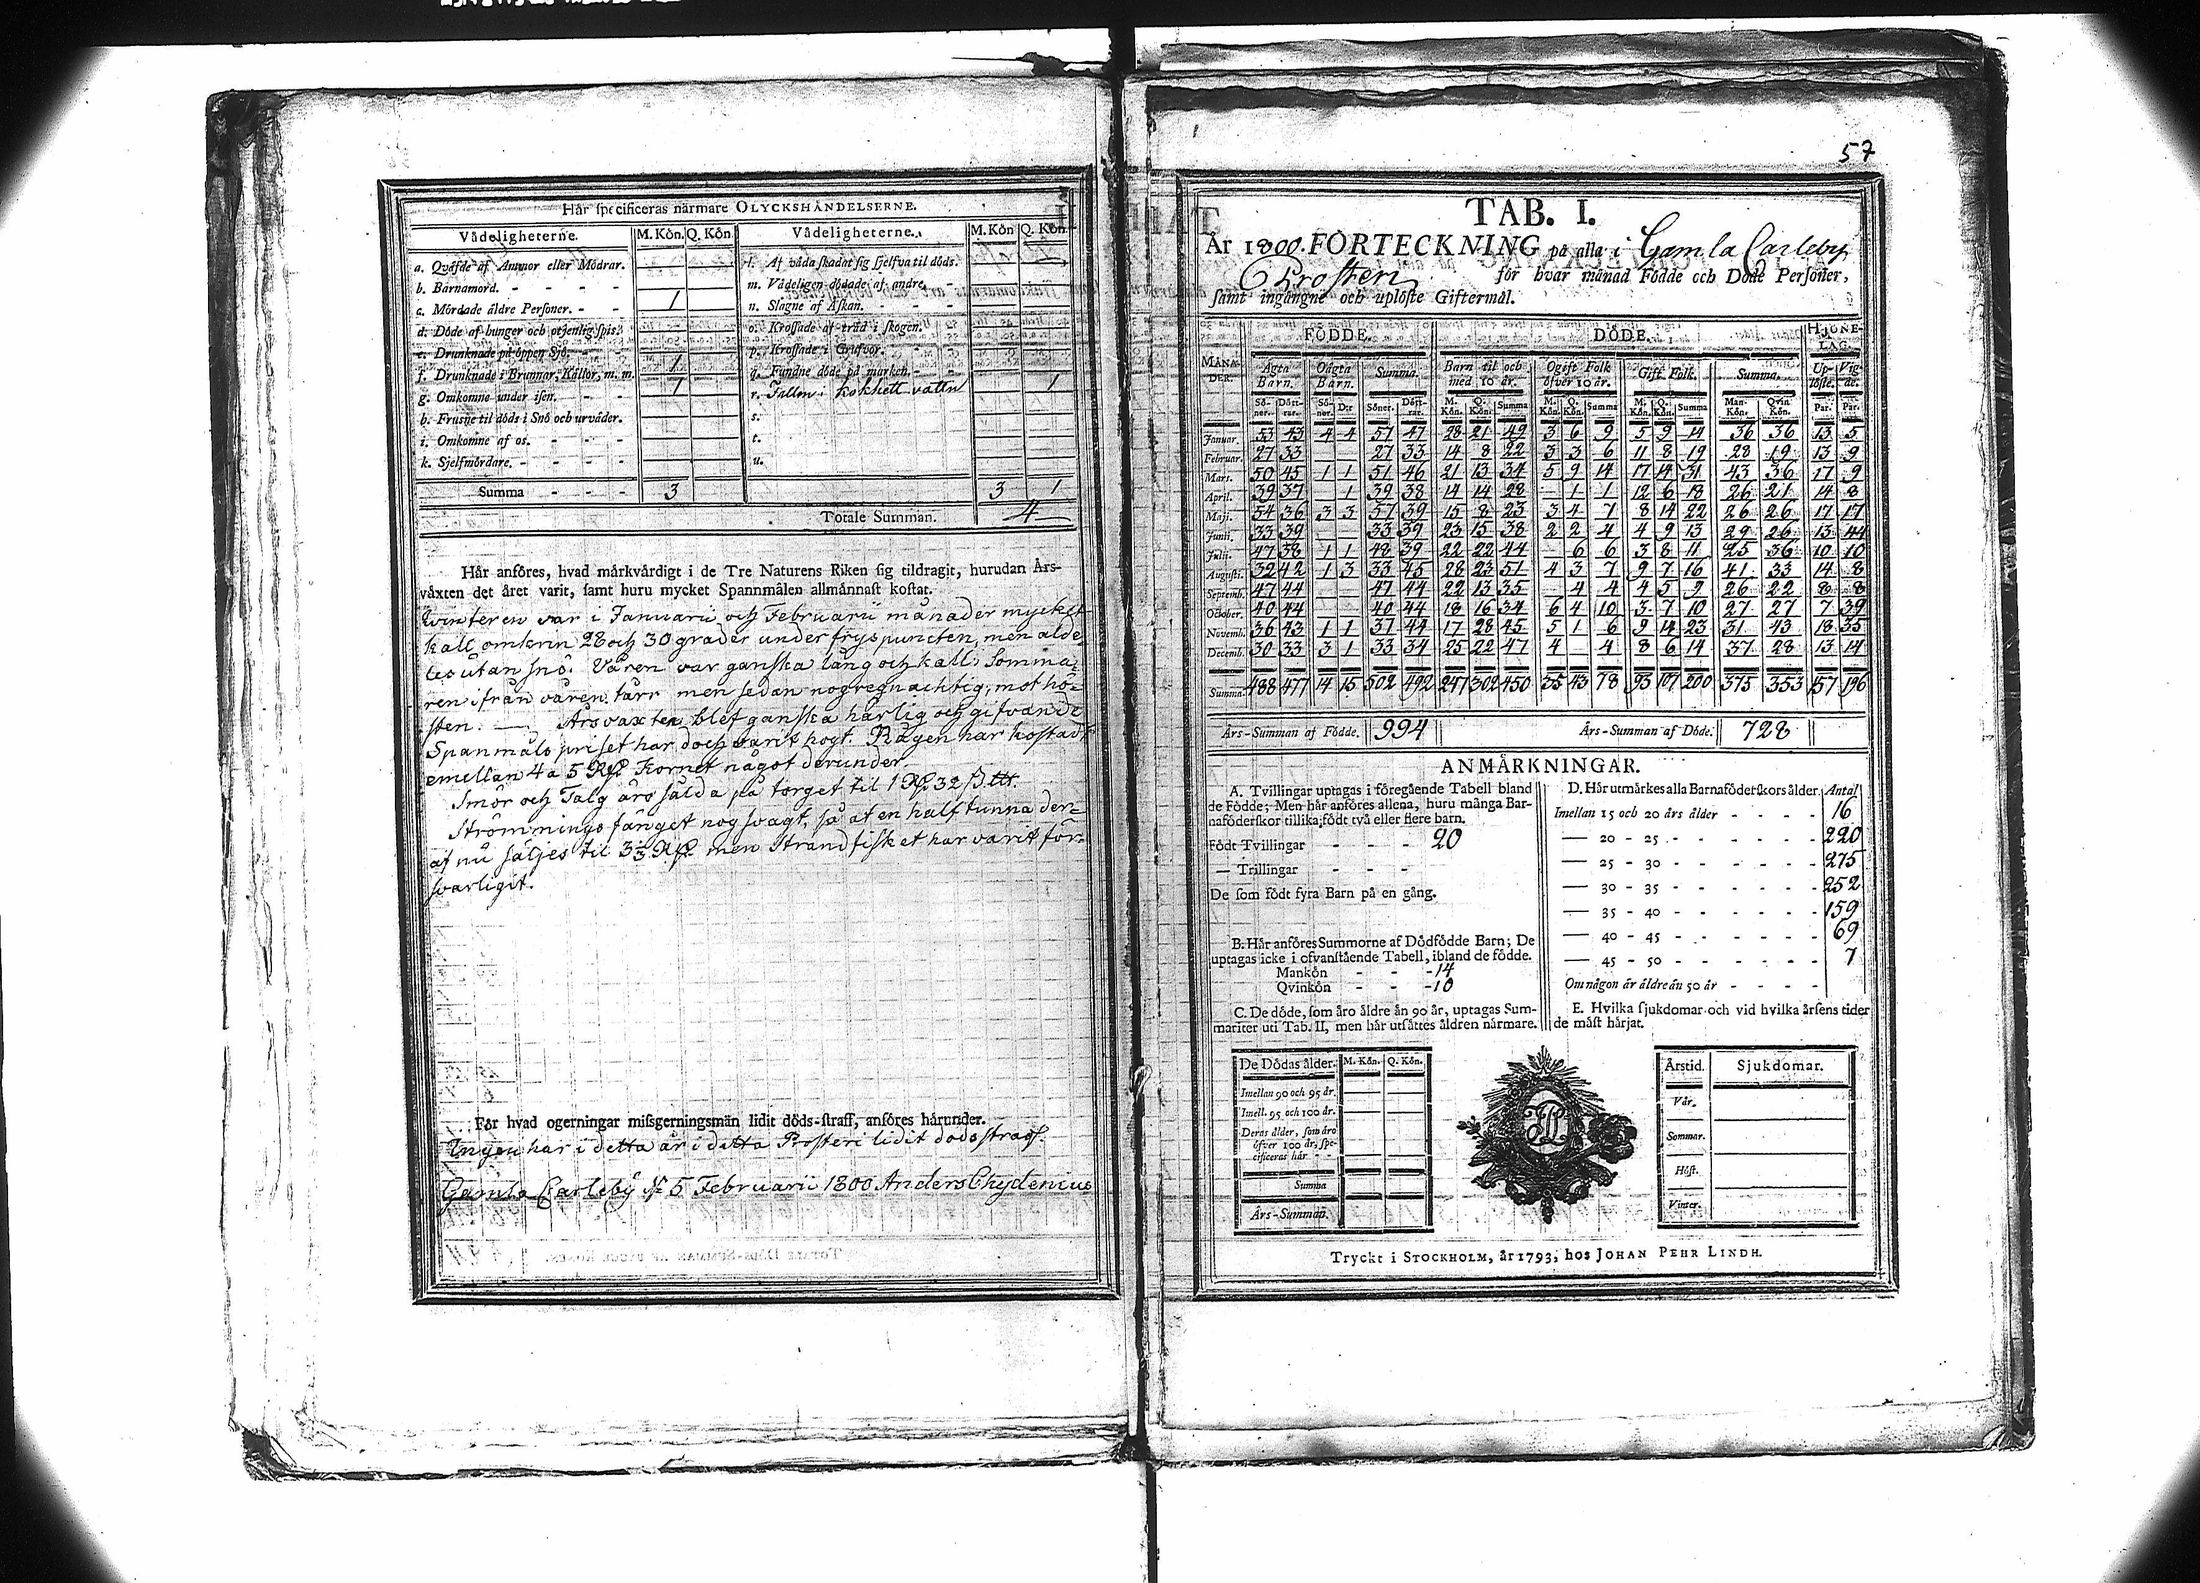 Här specificeras närmare OLYCKSHÄNDELSERNE.
Vådeligheterne. M. Kön. Q. Kön. Vådeligheterne. M. Kön Q. Kön.
a. Qväfde af Ammor eller Mödrar. l. Af våda skadat sig sjelfva til döds.
b. Barnamord. - - - - - m. Vådeligen dödade af andre. -
c. Mördade äldre Personer. - - 1 n. Slagne af Åskan. - -
d. Döde af hunger och otjenlig spis. o. Krossade af träd i skogen.
e. Drunknade på öppen Sjö. - - p. Krossade i Grufvor. - -
f. Drunknade i Brunnar, Källor, m. m. 1 q. Fundne döde på marken. -
g. Omkomne under isen. - - 1 r. Fallen i kokhett vattn 1
h. Frusne til döds i Snö och urväder. s.
i. Omkomne af os. - - - t.
k. Sjelfmördare. - - - - u.
Summa - - - 3 3 1
Totale Summan. 4
Här anföres, hvad märkvärdigt i de Tre Naturens Riken sig tildragit, hurudan Års-
växten det året varit, samt huru mycket Spannmålen allmännast kostat.
Winteren var i Januarii och Februarii månader mycket
kall omkrin 28 och 30 grader under fryspuncten, men alde
les utan snö. Våren var ganska lång och kall; Somma-
ren ifrån våren torr men sedan nog regnachtig, mot hö-
sten. — Årsvaxten blef ganska härlig och gifvande
Spanmåls priset har doch varit högt. Rågen har kostadt
emellan 4 a 5 Rd Kornet något derunder.
Smör och Talg äro sålda på torget til 1 Rd 32 s. ltt.
Strömmings fånget nog svagt, så at en half tunna der-
af nu säljes til 3 1/3 Rd men Strandfisket har varit för-
svarligit.
För hvad ogerningar missgerningsmän lidit döds-straff, anföres härunder.
Ingen har i detta år i detta Prosteri lidit dödsstraff.
Gamla Carleby d. 5 Februarii 1800 Anders Chydenius
57
TAB. I.
År 1800. FÖRTECKNING på alla i Gamla Carleby
Prosteri för hvar månad Födde och Döde Personer,
samt ingångne och uplöste Giftermål.
FÖDDE. DÖDE. HJONE-LAG.
MÅNA-DER. Ägta Barn. Oägta Barn. Summa. Barn til och med 10 år. Ogift Folk öfver 10 år. Gift Folk. Summa. Up-löste. Vig-de.
Sö-ner. Dött-rar. Sö-ner. D:r Söner. Dött-rar. M. Kön. Q. Kön. Summa M. Kön. Q. Kön. Summa M. Kön. Q. Kön. Summa Man-Kön. Qvin Kön. Par. Par.
Januar. 53 43 4 4 57 47 28 21 49 3 6 9 5 9 14 36 36 13 5
Februar. 27 33 27 33 14 8 22 3 3 6 11 8 19 28 19 13 9
Mars. 50 45 1 1 51 46 21 13 34 5 9 14 17 14 31 43 36 17 9
April. 39 37 — 1 39 38 14 14 28 — 1 1 12 6 18 26 21 14 8
Maji. 54 36 3 3 57 39 15 8 23 3 4 7 8 14 22 26 26 17 17
Junii. 33 39 33 39 23 15 38 2 2 4 4 9 13 29 26 13 44
Julii. 47 38 1 1 48 39 22 22 44 — 6 6 3 8 11 25 36 10 10
Augusti. 32 42 1 3 33 45 28 23 51 4 3 7 9 7 16 41 33 14 8
Septemb. 47 44 47 44 22 13 35 — 4 4 4 5 9 26 22 8 8
October. 40 44 40 44 18 16 34 6 4 10 3 7 10 27 27 7 39
Novemb. 36 43 1 1 37 44 17 28 45 5 1 6 9 14 23 31 43 18 35
Decemb. 30 33 3 1 33 34 25 22 47 4 — 4 8 6 14 37 28 13 14
Summa 488 477 14 15 502 492 247 302 450 35 43 78 93 107 200 375 353 157 196
Års-Summan af Födde. 994 Års-Summan af Döde. 728
ANMÄRKNINGAR.
A. Tvillingar uptagas i föregående Tabell bland
de Födde; Men här anföres allena, huru många Bar-
naföderskor tillika födt två eller flere barn.
Födt Tvillingar - - - 20
— Trillingar - - -
De som födt fyra Barn på en gång.
B. Här anföres Summorne af Dödfödde Barn; De
uptagas icke i ofvanstående Tabell, ibland de födde.
Mankön - - - 14
Qvinkön - - - 10
C. De döde, som äro äldre än 90 år, uptagas Sum-
mariter uti Tab. II, men här utsättes åldren närmare.
D. Här utmärkes alla Barnaföderskors ålder. Antal
Imellan 15 och 20 års ålder - - - - 16
— 20 - 25 - - - - - - 220
— 25 - 30 - - - - - - 275
— 30 - 35 - - - - - - 252
— 35 - 40 - - - - - - 159
— 40 - 45 - - - - - - 69
— 45 - 50 - - - - - - 7
Om någon är äldre än 50 år - - - -
E. Hvilka sjukdomar och vid hvilka årsens tider
de mäst härjat.
De Dödas ålder. M. Kön. Q. Kön.
Imellan 90 och 95 år.
Imell. 95 och 100 år.
Deras ålder, som äro
öfver 100 år, spe-
cificeras här - -
Summa
Års-Summan.
Årstid. Sjukdomar.
Vår.
Sommar.
Höst.
Vinter.
Tryckt i STOCKHOLM, år 1793, hos JOHAN PEHR LINDH.